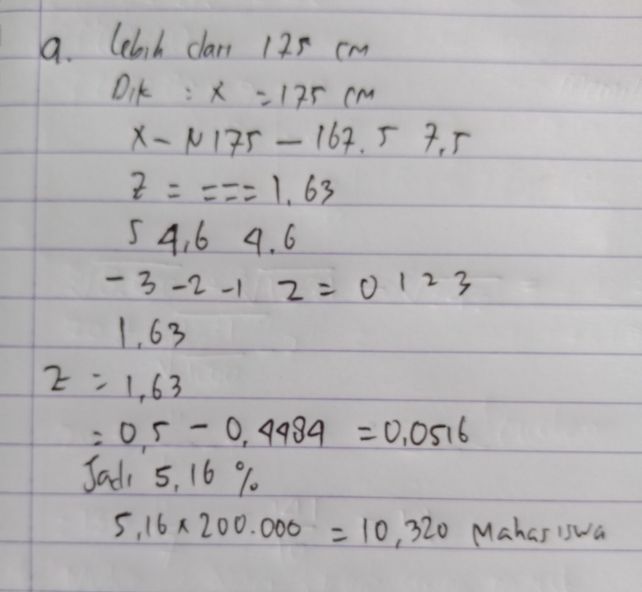 a. lebih dari 175 cm
Dik : x = 175 cm
x - N 175 - 167.5 7,5
Z = === 1,63
S 4,6 4.6
-3 -2 -1 Z = 0 1 2 3
1,63
Z = 1,63
= 0,5 - 0,4484 = 0,0516
Jadi 5,16 %
5,16 x 200.000 = 10,320 Mahasiswa